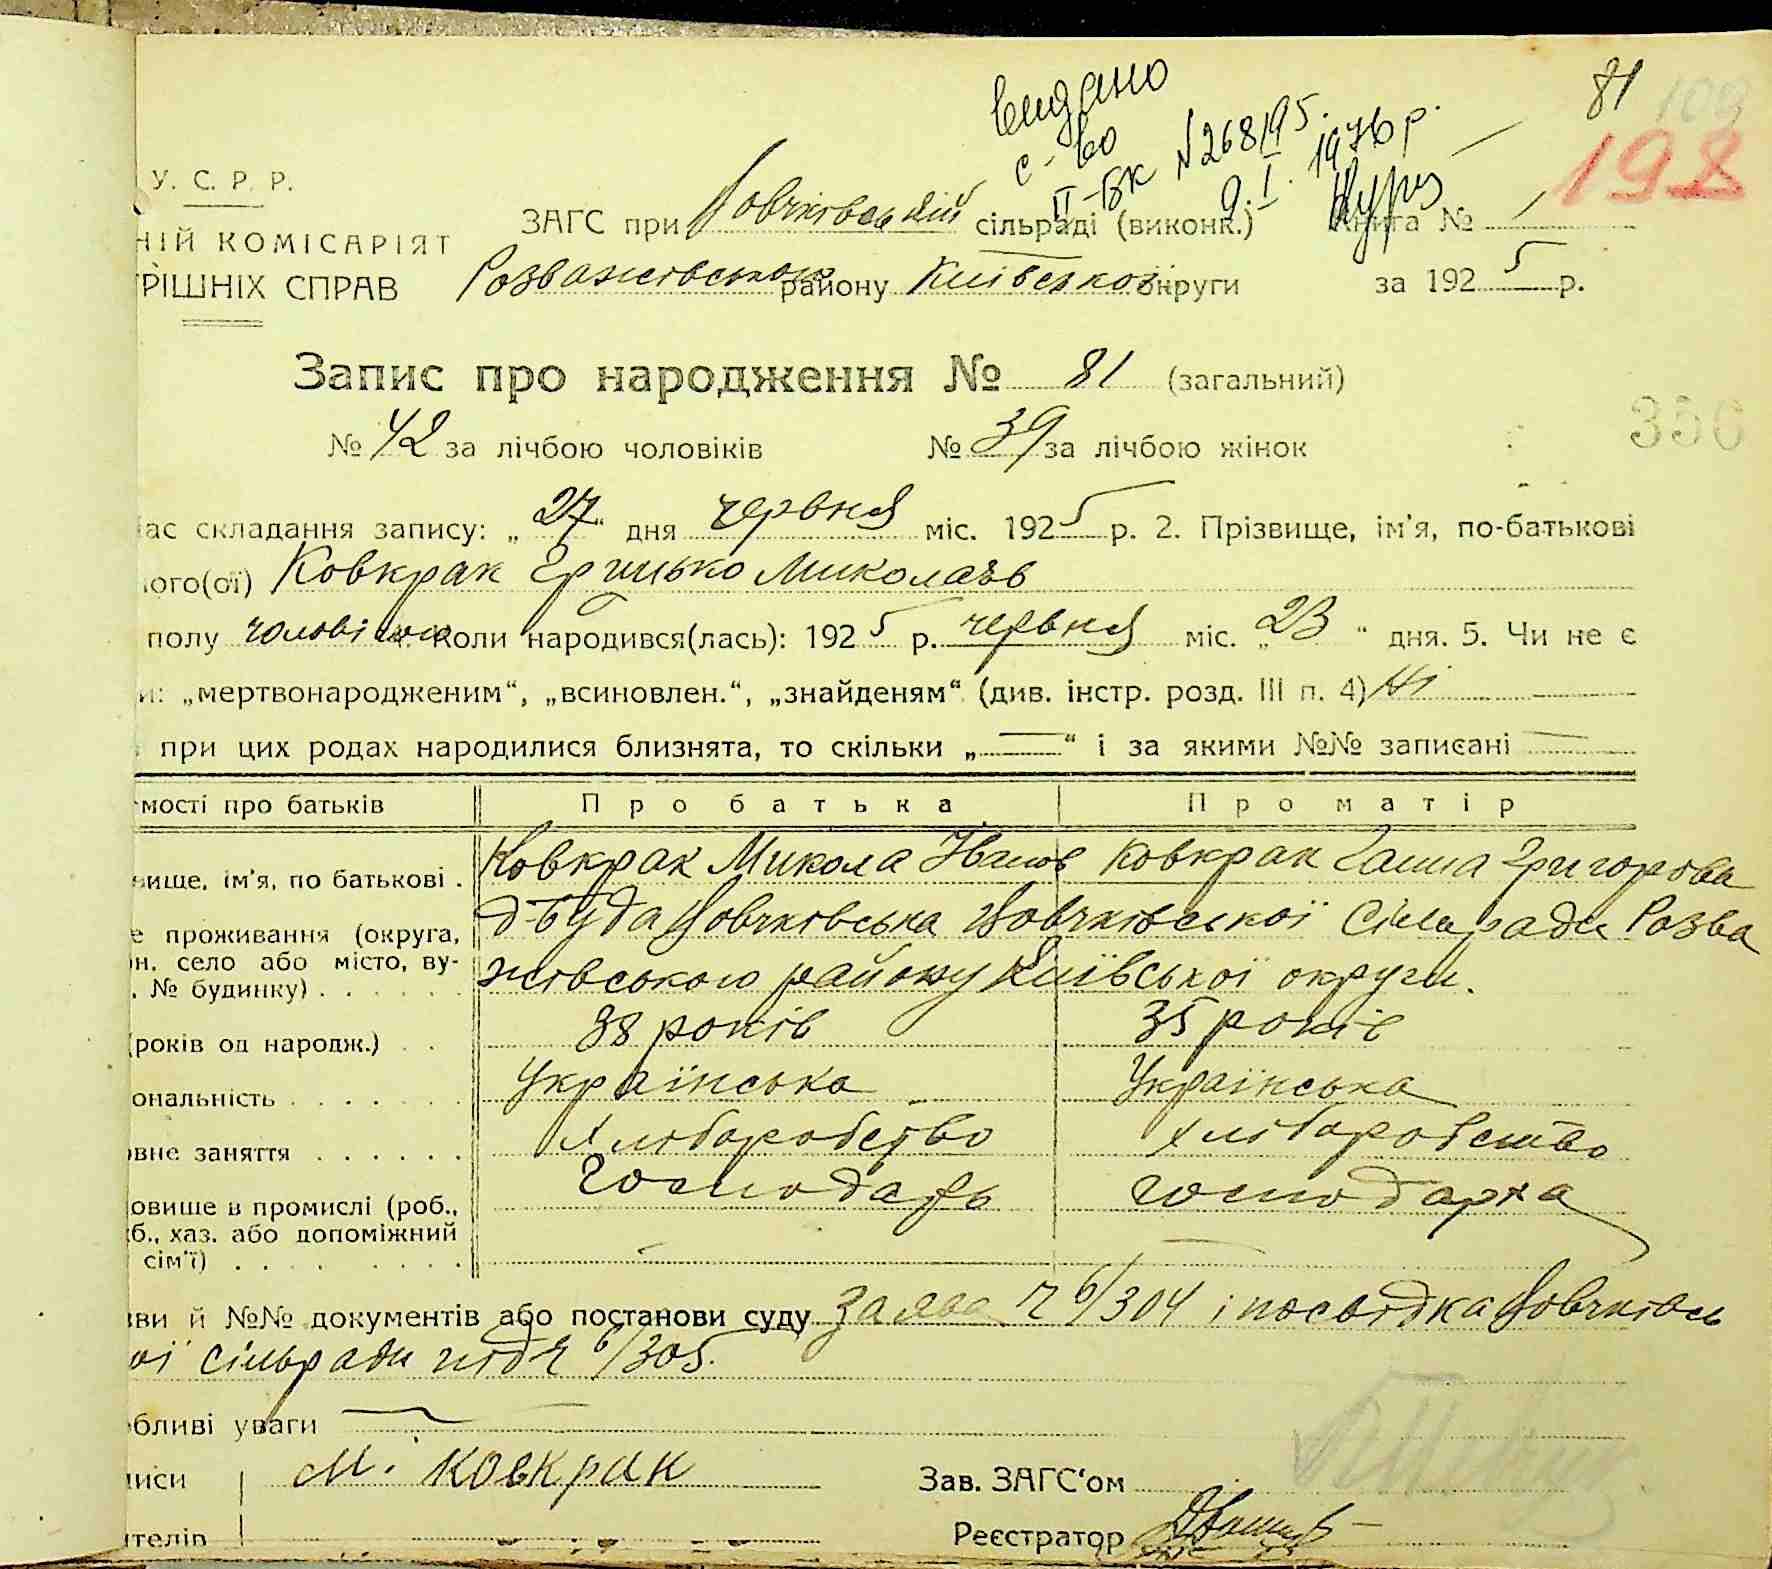 видано
с-во
ІІ-БК №268195.
9.І. 1976 р.
81
109
198
У. С. Р. Р.
НІЙ КОМІСАРІЯТ
ТРІШНІХ СПРАВ
ЗАГС при Вовчківській сільраді (виконк.) Книга № 1
Розважівського району Київської округи за 1925 р.
Запис про народження № 81 (загальний)
№ 42 за лічбою чоловіків № 39 за лічбою жінок
356
час складання запису: „27“ дня червня міс. 1925 р. 2. Прізвище, ім'я, по-батькові
ного(ої) Ковкрак Грицько Миколаїв
полу чоловічого коли народився(лась): 1925 р. червня міс. „23“ дня. 5. Чи не є
и: „мертвонародженим“, „всиновлен.“, „знайденям“ (див. інстр. розд. III п. 4) Ні
при цих родах народилися близнята, то скільки „—“ і за якими №№ записані —
мості про батьків Про батька Про матір
вище, ім'я, по батькові . Ковкрак Микола Іванов Ковкрак Ганна Григорова
е проживання (округа, д-Буда Вовчківська Вовчківської Сільради Розва
н, село або місто, ву-
, № будинку) . . . . . . жівського району Київської округи.
(років од народж.) . . 38 років 35 років
ональність . . . . . . . Українська Українська
овне заняття . . . . . . Хліборобство хліборобство
овище в промислі (роб., Господарь господарка
б., хаз. або допоміжний
сім'ї) . . . . . . . .
зви й №№ документів або постанови суду Заява Ч 6/304 і посвідка Вовчківсь
ої сільради під Ч 6/305.
бливі уваги —
писи М. Ковкрак Зав. ЗАГС'ом
ителів Реєстратор